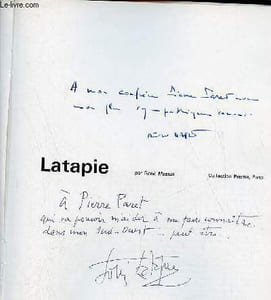 LIVRE-RARE-BOOK.COM
A mon confrère Pierre Paret avec
mon plus sympathique
Latapie
par René Massat
Collection Prisme, Paris
à Pierre Paret
qui va pouvoir m'aider à me faire connaître
dans mon Sud-Ouest... peut être.
Latapie